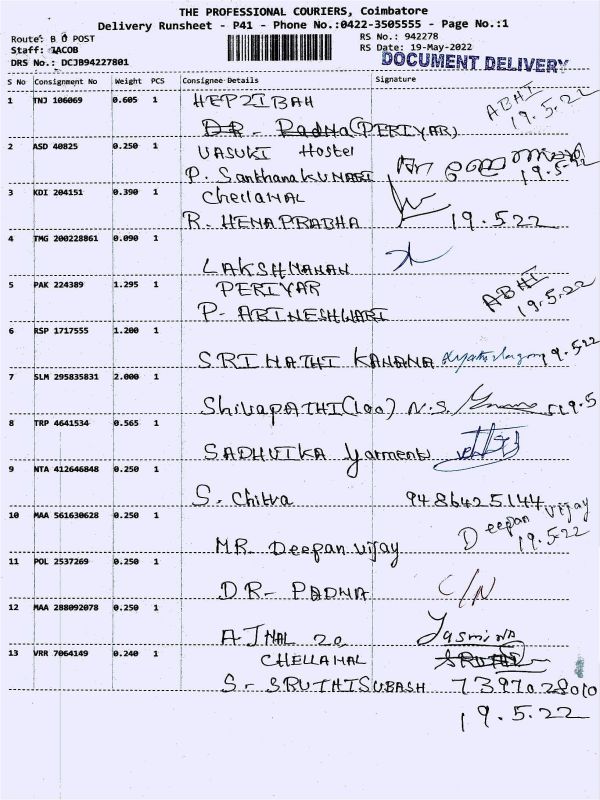 THE PROFESSIONAL COURIERS, Coimbatore
Delivery Runsheet - P41 - Phone No.:0422-3505555 - Page No.:1
Route: B O POST
RS No.: 942278
Staff: JACOB
RS Date: 19-May-2022
DRS No.: DCJB94227801
DOCUMENT DELIVERY
S No Consignment No Weight PCS Consignee Details Signature
1 TNJ 106069 0.605 1 HEPZIBAH ABHI
DR - Radha (PERIYAR) 19.5.22
2 ASD 40825 0.250 1 VASUKI Hostel
P. Santhanakumari 19.5.22
3 KDI 204151 0.390 1 Chellamal
R. HEMAPRABHA 19.5.22
4 TMG 200228861 0.090 1
LAKSHMANAN
5 PAK 224389 1.295 1 PERIYAR ABHI
P- ABINESHWARI 19.5.22
6 RSP 1717555 1.200 1
SRIMATHI KANANA 19.5.22
7 SLM 295835831 2.000 1
ShivaPATHI (Loo) N.S.
8 TRP 4641534 0.565 1
SADHVIKA Garments
9 NTA 412646848 0.250 1
S. Chitra 9486425144
10 MAA 561630628 0.250 1 Deepan vijay
MR. Deepan vijay 19.5.22
11 POL 2537269 0.250 1
DR- PADMA C/N
12 MAA 288092078 0.250 1
AJMAL Jasmina
13 VRR 7064149 0.240 1 CHELLAMAL
S- SRUTHISUBASH 7397028010
19.5.22